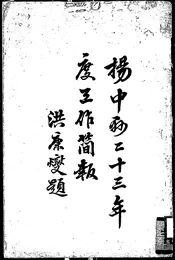 揚中縣二十三年
度工作简報
洪康燮題